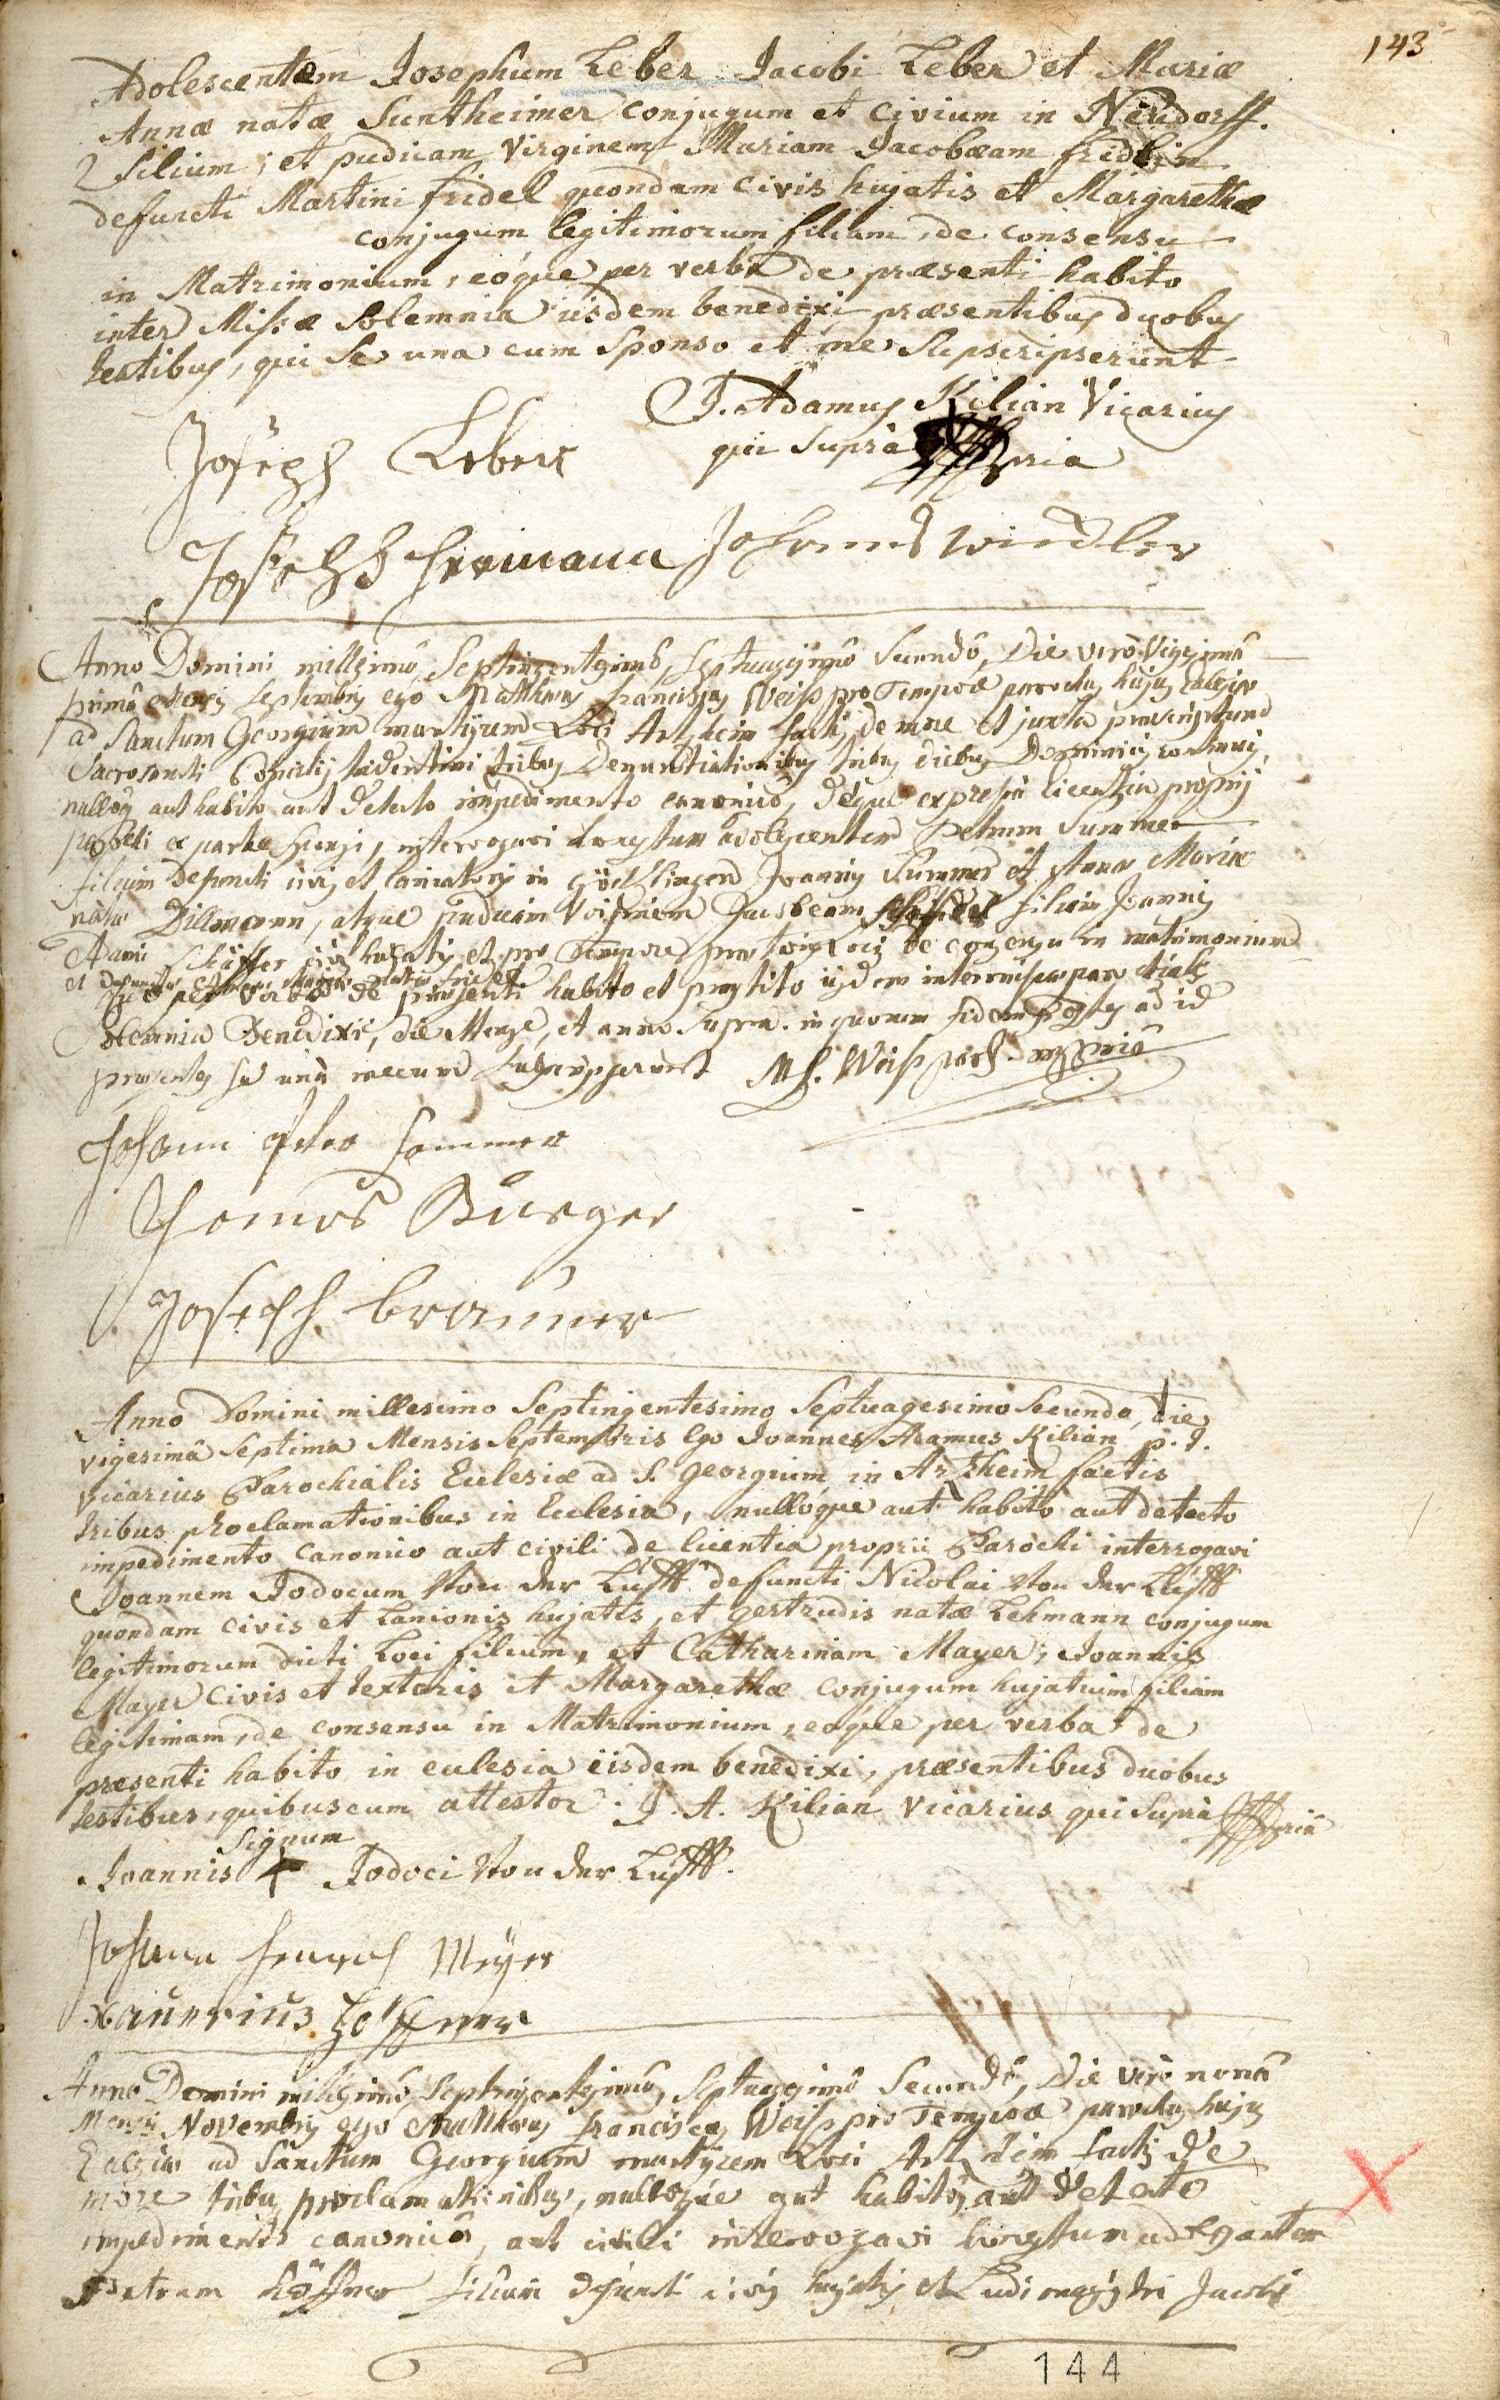 143
Adolescentem Josephum Leber Jacobi Leber et Mariæ
Annæ natæ Suntheimer conjugum et civium in Neüdorff.
filium; et pudicam Virginem Mariam Jacobæam fridlin
defuncti Martini fridel quondam civis hujatis et Margarethæ
conjugum legitimorum filiam, de consensu
in Matrimonium, eóque per verba de præsenti habito
inter Missæ Solemnia iisdem benedixi præsentibus duobus
testibus, qui se una cum Sponso et me Supscripserunt
J. Adamus Kilian Vicarius
qui Supra pria
Joseph Leber
Joseph Hermann Johannes Windler
Anno Domini millesimô Septingentesimô Septuagesimô Secundô, Die verò Vigesimâ
primâ Mensis Septembris ego Matthæus Franciscus Weiss pro Tempore parochus hujus Ecclesiæ
ad Sanctum Georgium martyrem Loci Artzheim factis de more et juxta præscriptum
Sacrosancti Concilij tridentini tribus Denuntiationibus tribus diebus Dominicis continuis,
nullóque aut habito aut detecto impedimento canonicô, déque expressâ licentiâ proprij
parochi ex parte Sponsi, interrogavi honestum adolescentem Petrum Summer
filium Defuncti civis et laniatoris in Göcklingen Joannis Summer et Annæ Mariæ
natæ Dillmann, atque pudicam Virginem Jacobeam filiam Joannis
Adami Schäffer civis hujatis et pro Tempore loci de consensu in matrimonium
et defunctæ
eo per verba de præsenti habito et præstito iisdem inter missæ parochialis
Solemnia Benedixi, die Mense, et anno supra. in quorum fidem testes ad id
præsentes se unà mecum Subscripserunt M. F. Weiss par. mppriâ
Johann Peter Sommer
Thomas Burger
Joseph Brauner
Anno Domini millesimo Septingentesimo Septuagesimo Secundo, die
vigesima Septima Mensis Septembris Ego Joannes Adamus Kilian p. t.
vicarius Parochialis Ecclesiæ ad S. Georgium in Arzheim factis
tribus proclamationibus in Ecclesia, nullóque aut habito aut detecto
impedimento canonico aut civili de licentia proprii Parochi interrogavi
Joannem Jodocum Von der Lüfft defuncti Nicolai Von der Lüfft
quondam civis et Lanionis hujatis, et gertrudis natæ Lehmann conjugum
legitimorum dicti Loci filium, et Catharinam Mayer; Joannis
Mayer civis et textoris et Margarethæ conjugum hujatium filiam
legitimam, de consensu in Matrimonium, eóque per verba de
præsenti habito in ecclesia iisdem benedixi, præsentibus duobus
testibus, quibuscum attestor. J. A. Kilian Vicarius qui Supra pria
Signum
Joannis + Jodoci Von der Lüfft.
Johann Henrich Meÿer
Xauerius Höffner
Anno Domini millesimô Septingentesimô Septuagesimô Secundô, Die verò nonâ
Mensis Novembris ego Matthæus Franciscus Weiss pro Tempore parochus hujus
Ecclesiæ ad Sanctum Georgium martyrem Loci Artzheim factis de
more tribus proclamationibus, nullóque aut habitô aut detecto
impedimentô canonicô, aut civili interrogavi honestum adolescentem
Petrum Höffner filium defuncti civis hujatis et Ludi magistri Jacobi
144